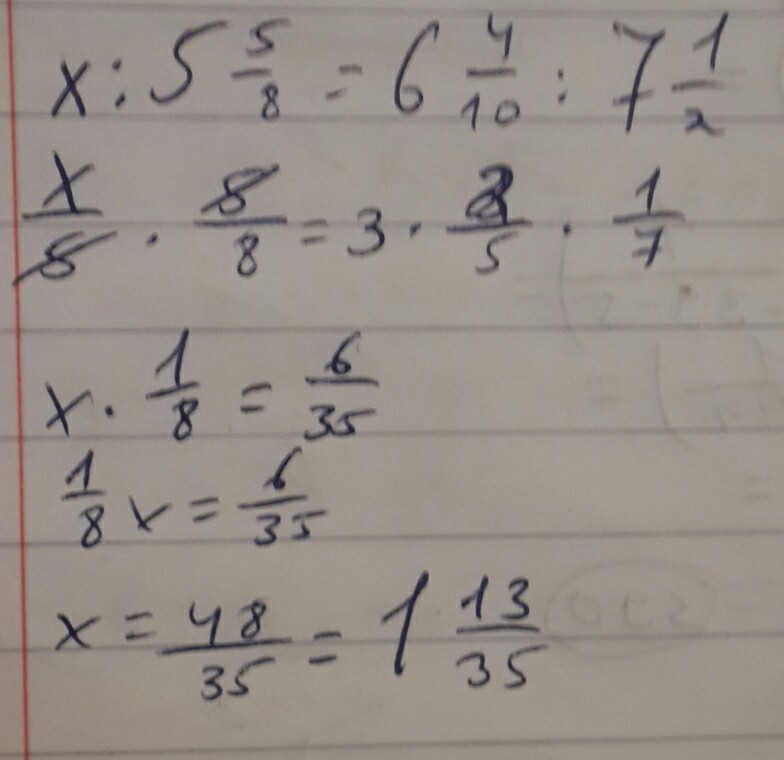 x : 5 5/8 = 6 4/10 : 7 1/2
x/5 · 5/8 = 3 · 2/5 · 1/7
x · 1/8 = 6/35
1/8 x = 6/35
x = 48/35 = 1 13/35